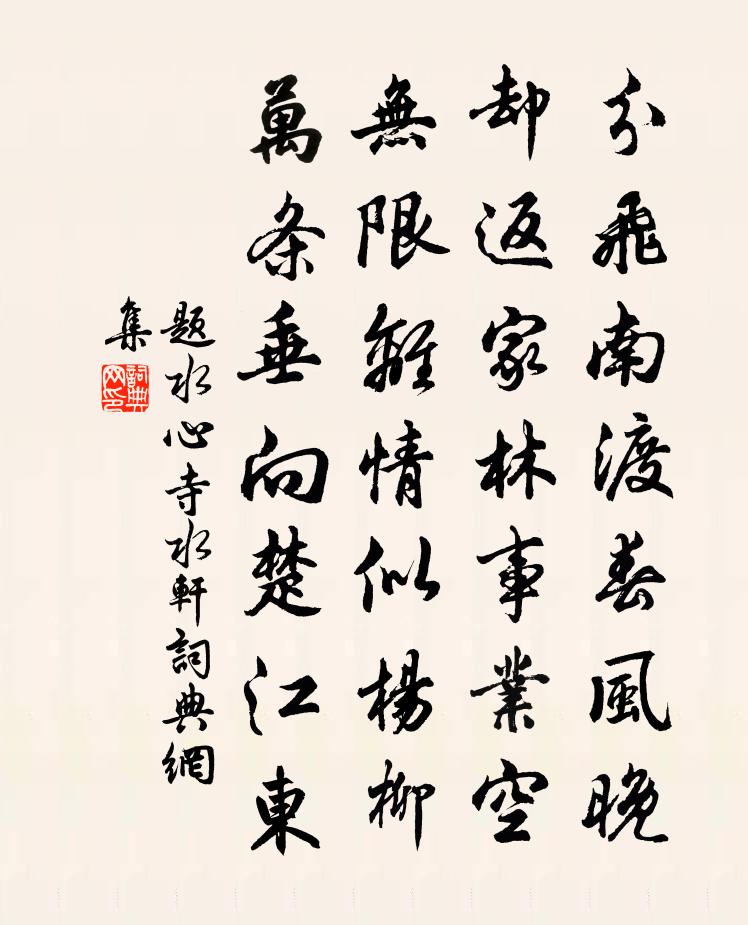 分飛南渡春風晚
却返家林事業空
無限離情似楊柳
萬条垂向楚江東
題水心寺水軒詞典網
集
詞典網印